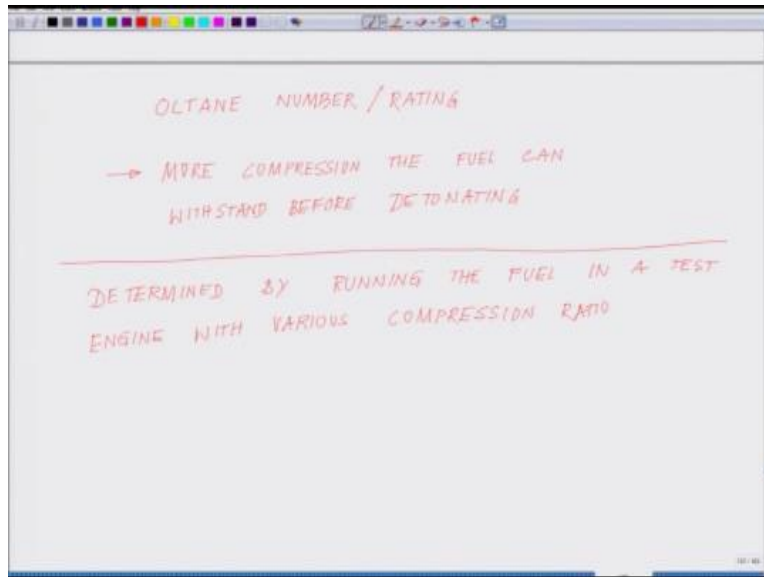 OLTANE NUMBER / RATING
→ MORE COMPRESSION THE FUEL CAN
WITHSTAND BEFORE DETONATING
DETERMINED BY RUNNING THE FUEL IN A TEST
ENGINE WITH VARIOUS COMPRESSION RATIO